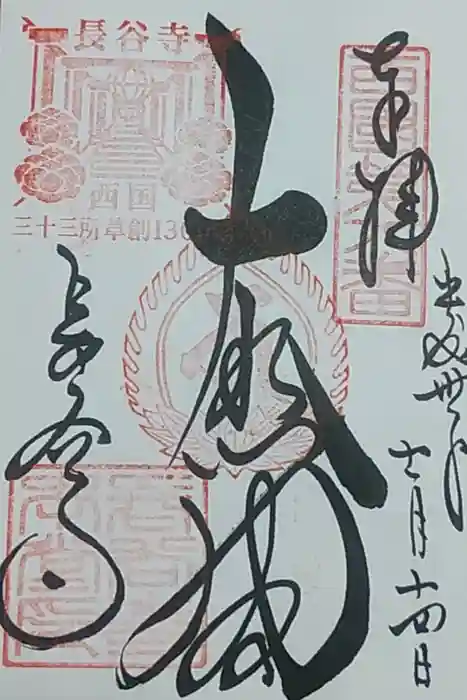 奉拝
平成卅年
十一月十四日
大悲閣
長谷寺
長谷寺
西国
三十三所草創1300年